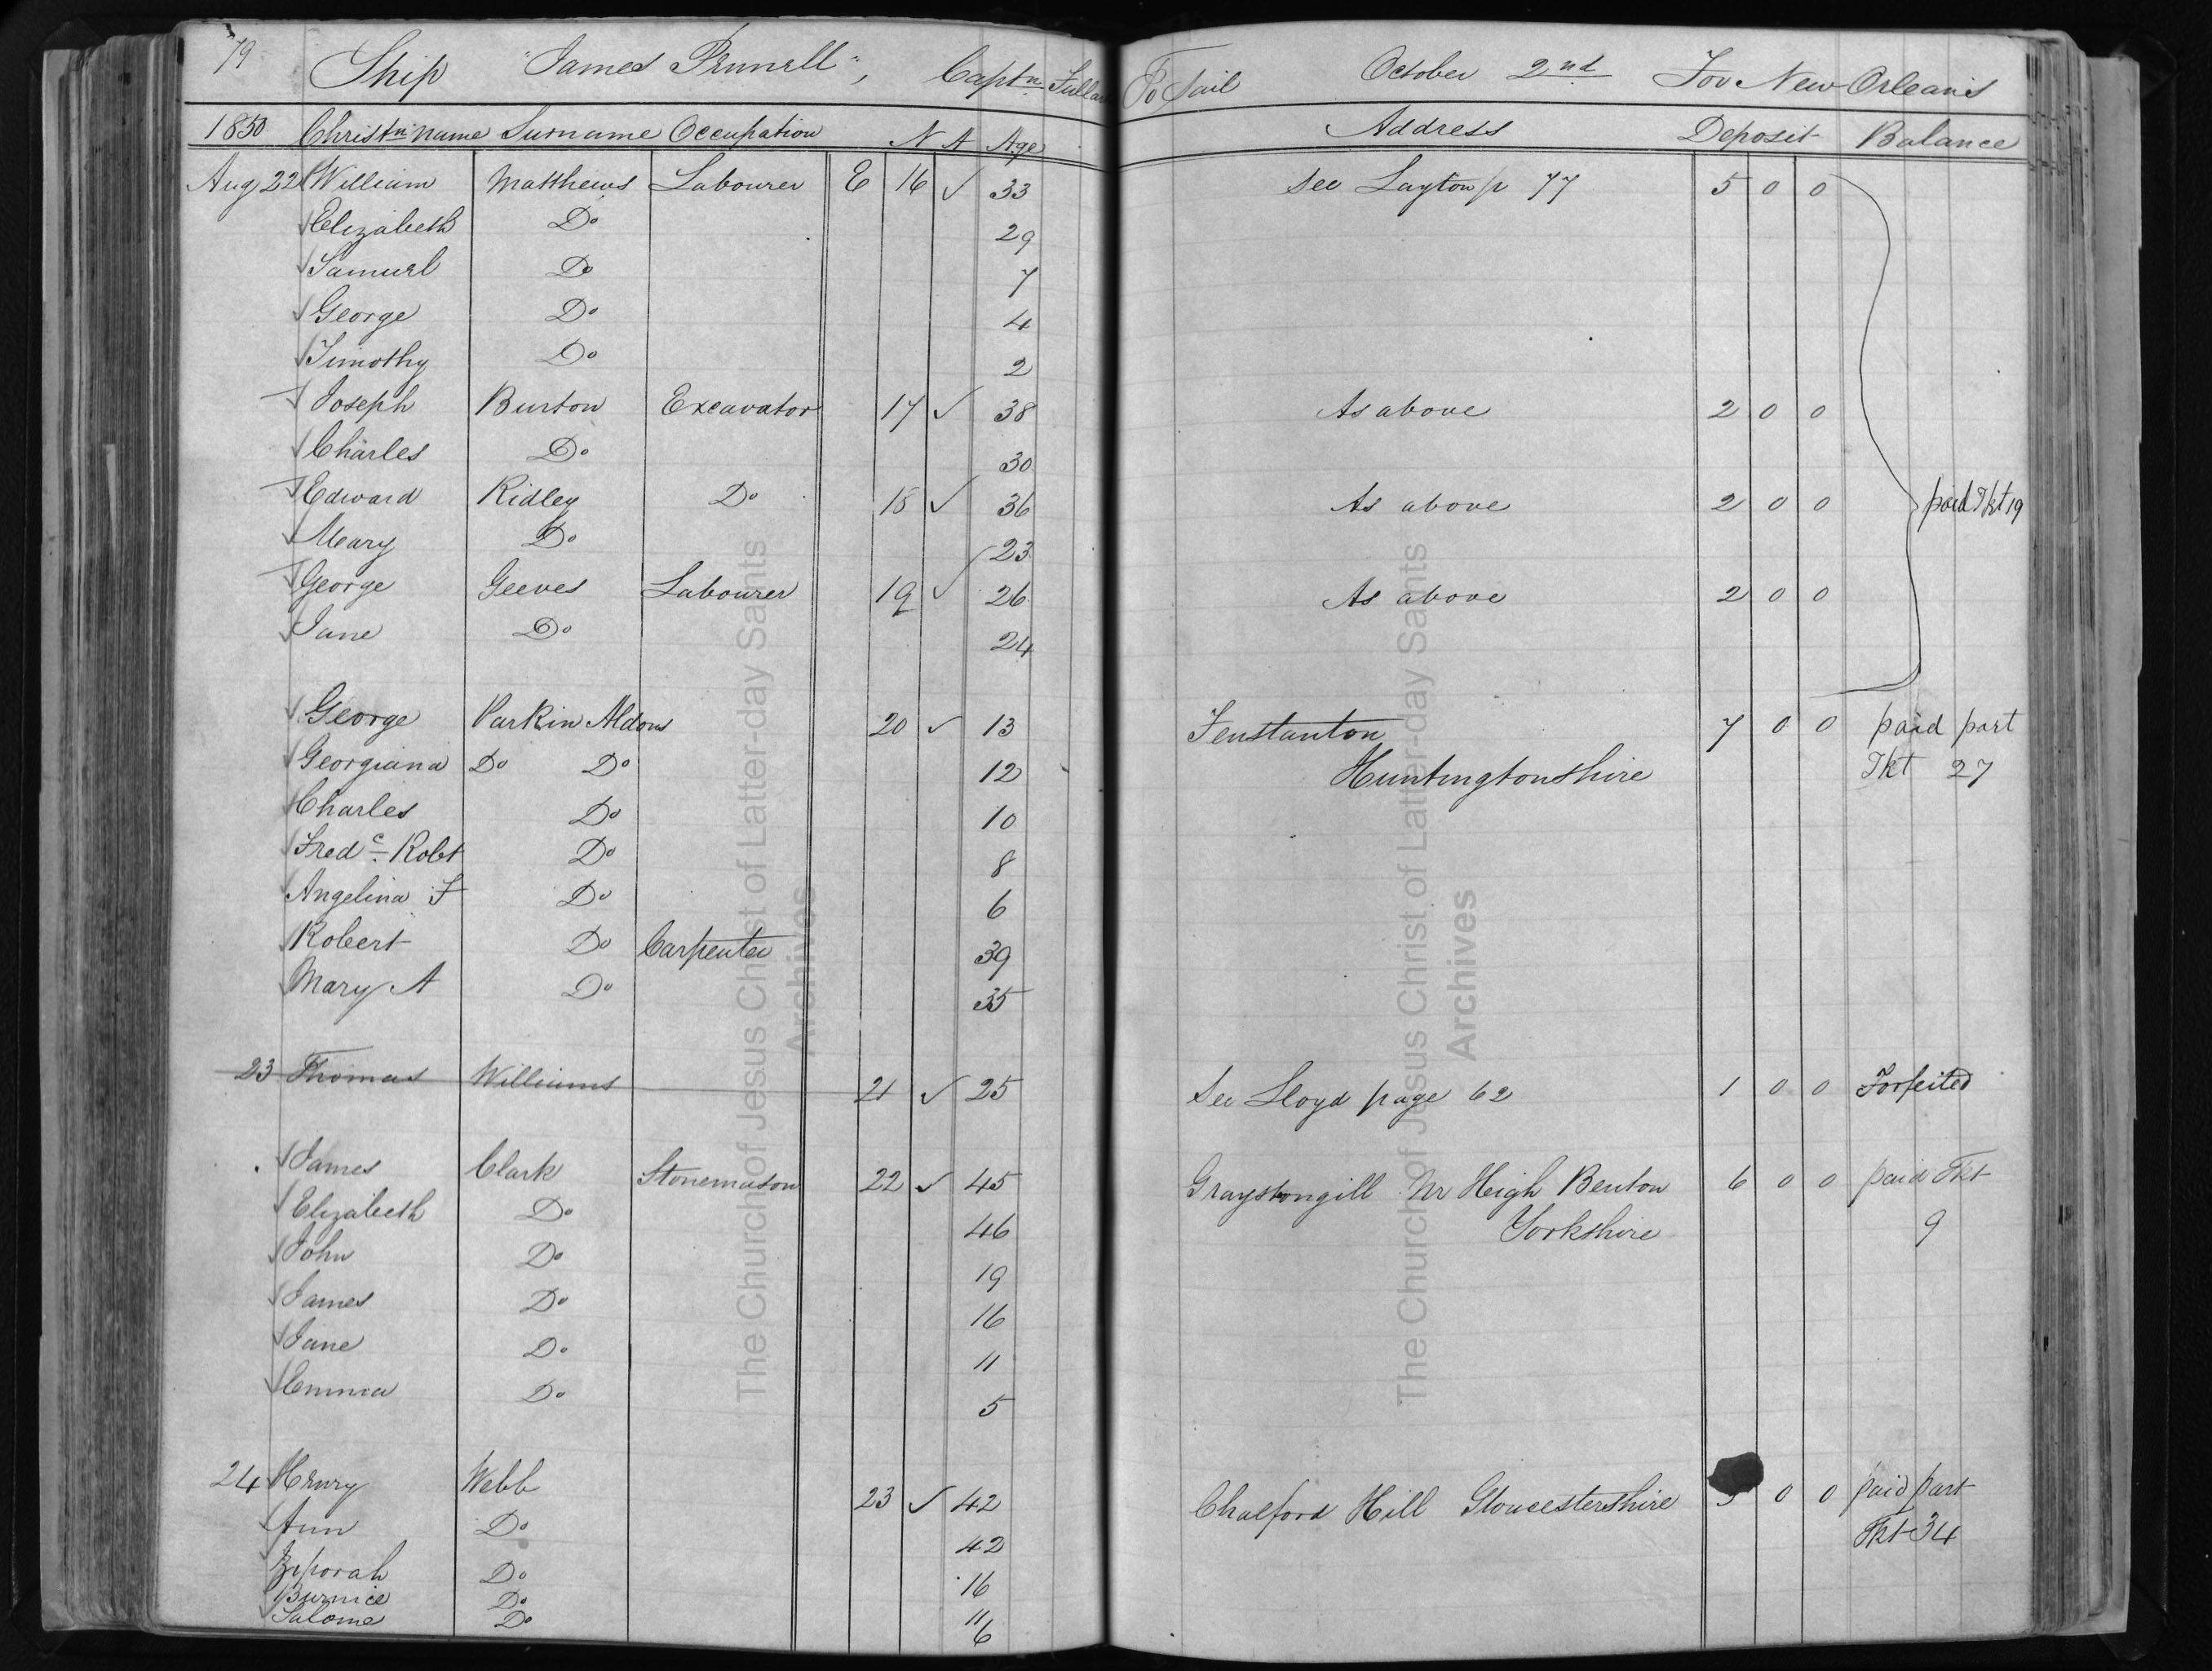 79 Ship "James Pennell", Captn Fullar To Sail October 2nd For New Orleans
1850 Christn name Surname Occupation N A Age Address Deposit Balance
Aug 22 William Matthews Labourer E 16 ✓ 33 See Layton p 77 5 0 0
Elizabeth Do 29
Samuel Do 7
George Do 4
Timothy Do 2
Joseph Burton Excavator 17 ✓ 38 As above 2 0 0
Charles Do 30
Edward Ridley Do 18 ✓ 36 As above 2 0 0 paid Tkt 19
Mary Do 23
George Geeves Labourer 19 ✓ 26 As above 2 0 0
Jane Do 24
George Parkin Aldous 20 ✓ 13 Fenstanton 7 0 0 paid part
Georgiana Do Do 12 Huntingtonshire Tkt 27
Charles Do 10
Fredc Robt Do 8
Angelina F Do 6
Robert Do Carpenter 39
Mary A Do 35
23 Thomas Williams 21 ✓ 25 See Lloyd page 62 1 0 0 Forfeited
James Clark Stonemason 22 ✓ 45 Graystongill Nr Heigh Benton 6 0 0 paid Tkt
Elizabeth Do 46 Yorkshire 9
John Do 19
James Do 16
Jane Do 11
Emma Do 5
24 Henry Webb 23 ✓ 42 Chalford Hill Gloucestershire 5 0 0 paid part
Ann Do 42 Tkt 34
Ziporah Do 16
Burnice Do 11
Salome Do 6
The Church of Jesus Christ of Latter-day Saints
Archives
The Church of Jesus Christ of Latter-day Saints
Archives